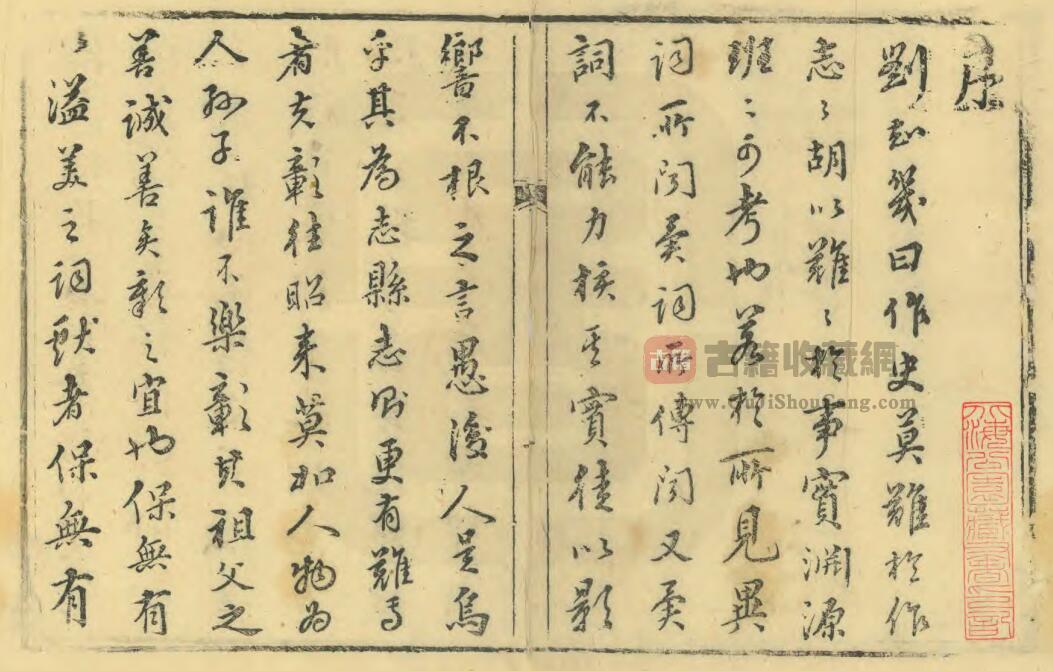 序
劉知幾曰作史莫難於作
志々胡以難々於事實淵源
班々可考也若於所見異
詞所聞異詞所傳聞又異
詞不能力核其實徒以影
響不根之言愚後人是烏
乎其為志縣志則更有難焉
者夫彰往昭來莫如人物為
人孫子誰不樂彰其祖父之
善誠善矣彰之宜也保無有
々溢美之詞獻者保無有
古籍 古籍收藏網
www.GujiShouCang.com